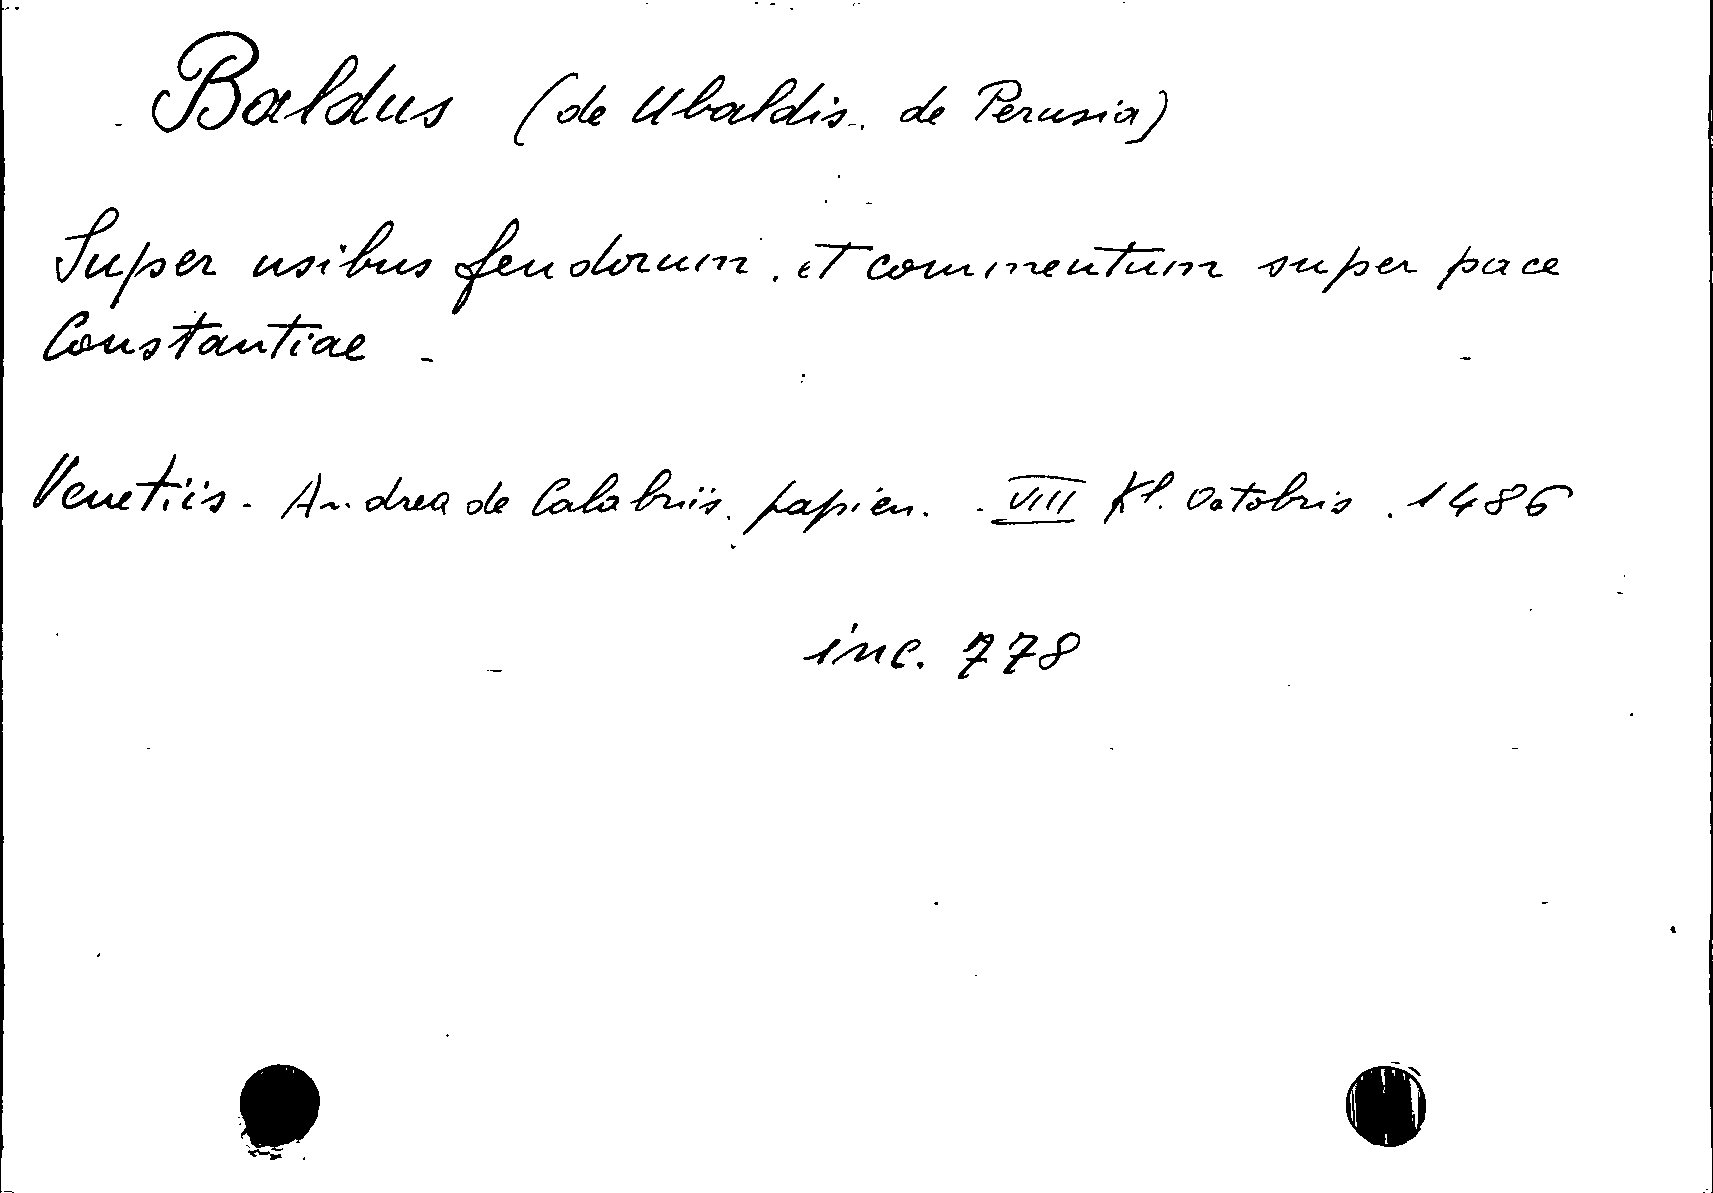 Baldus (de Ubaldis. de Perusia)
Super usibus feudorum. et commentum super pace
Constantiae
Venetiis. Andrea de Calabriis. papien. VIII Kl. Octobris. 1486
inc. 778